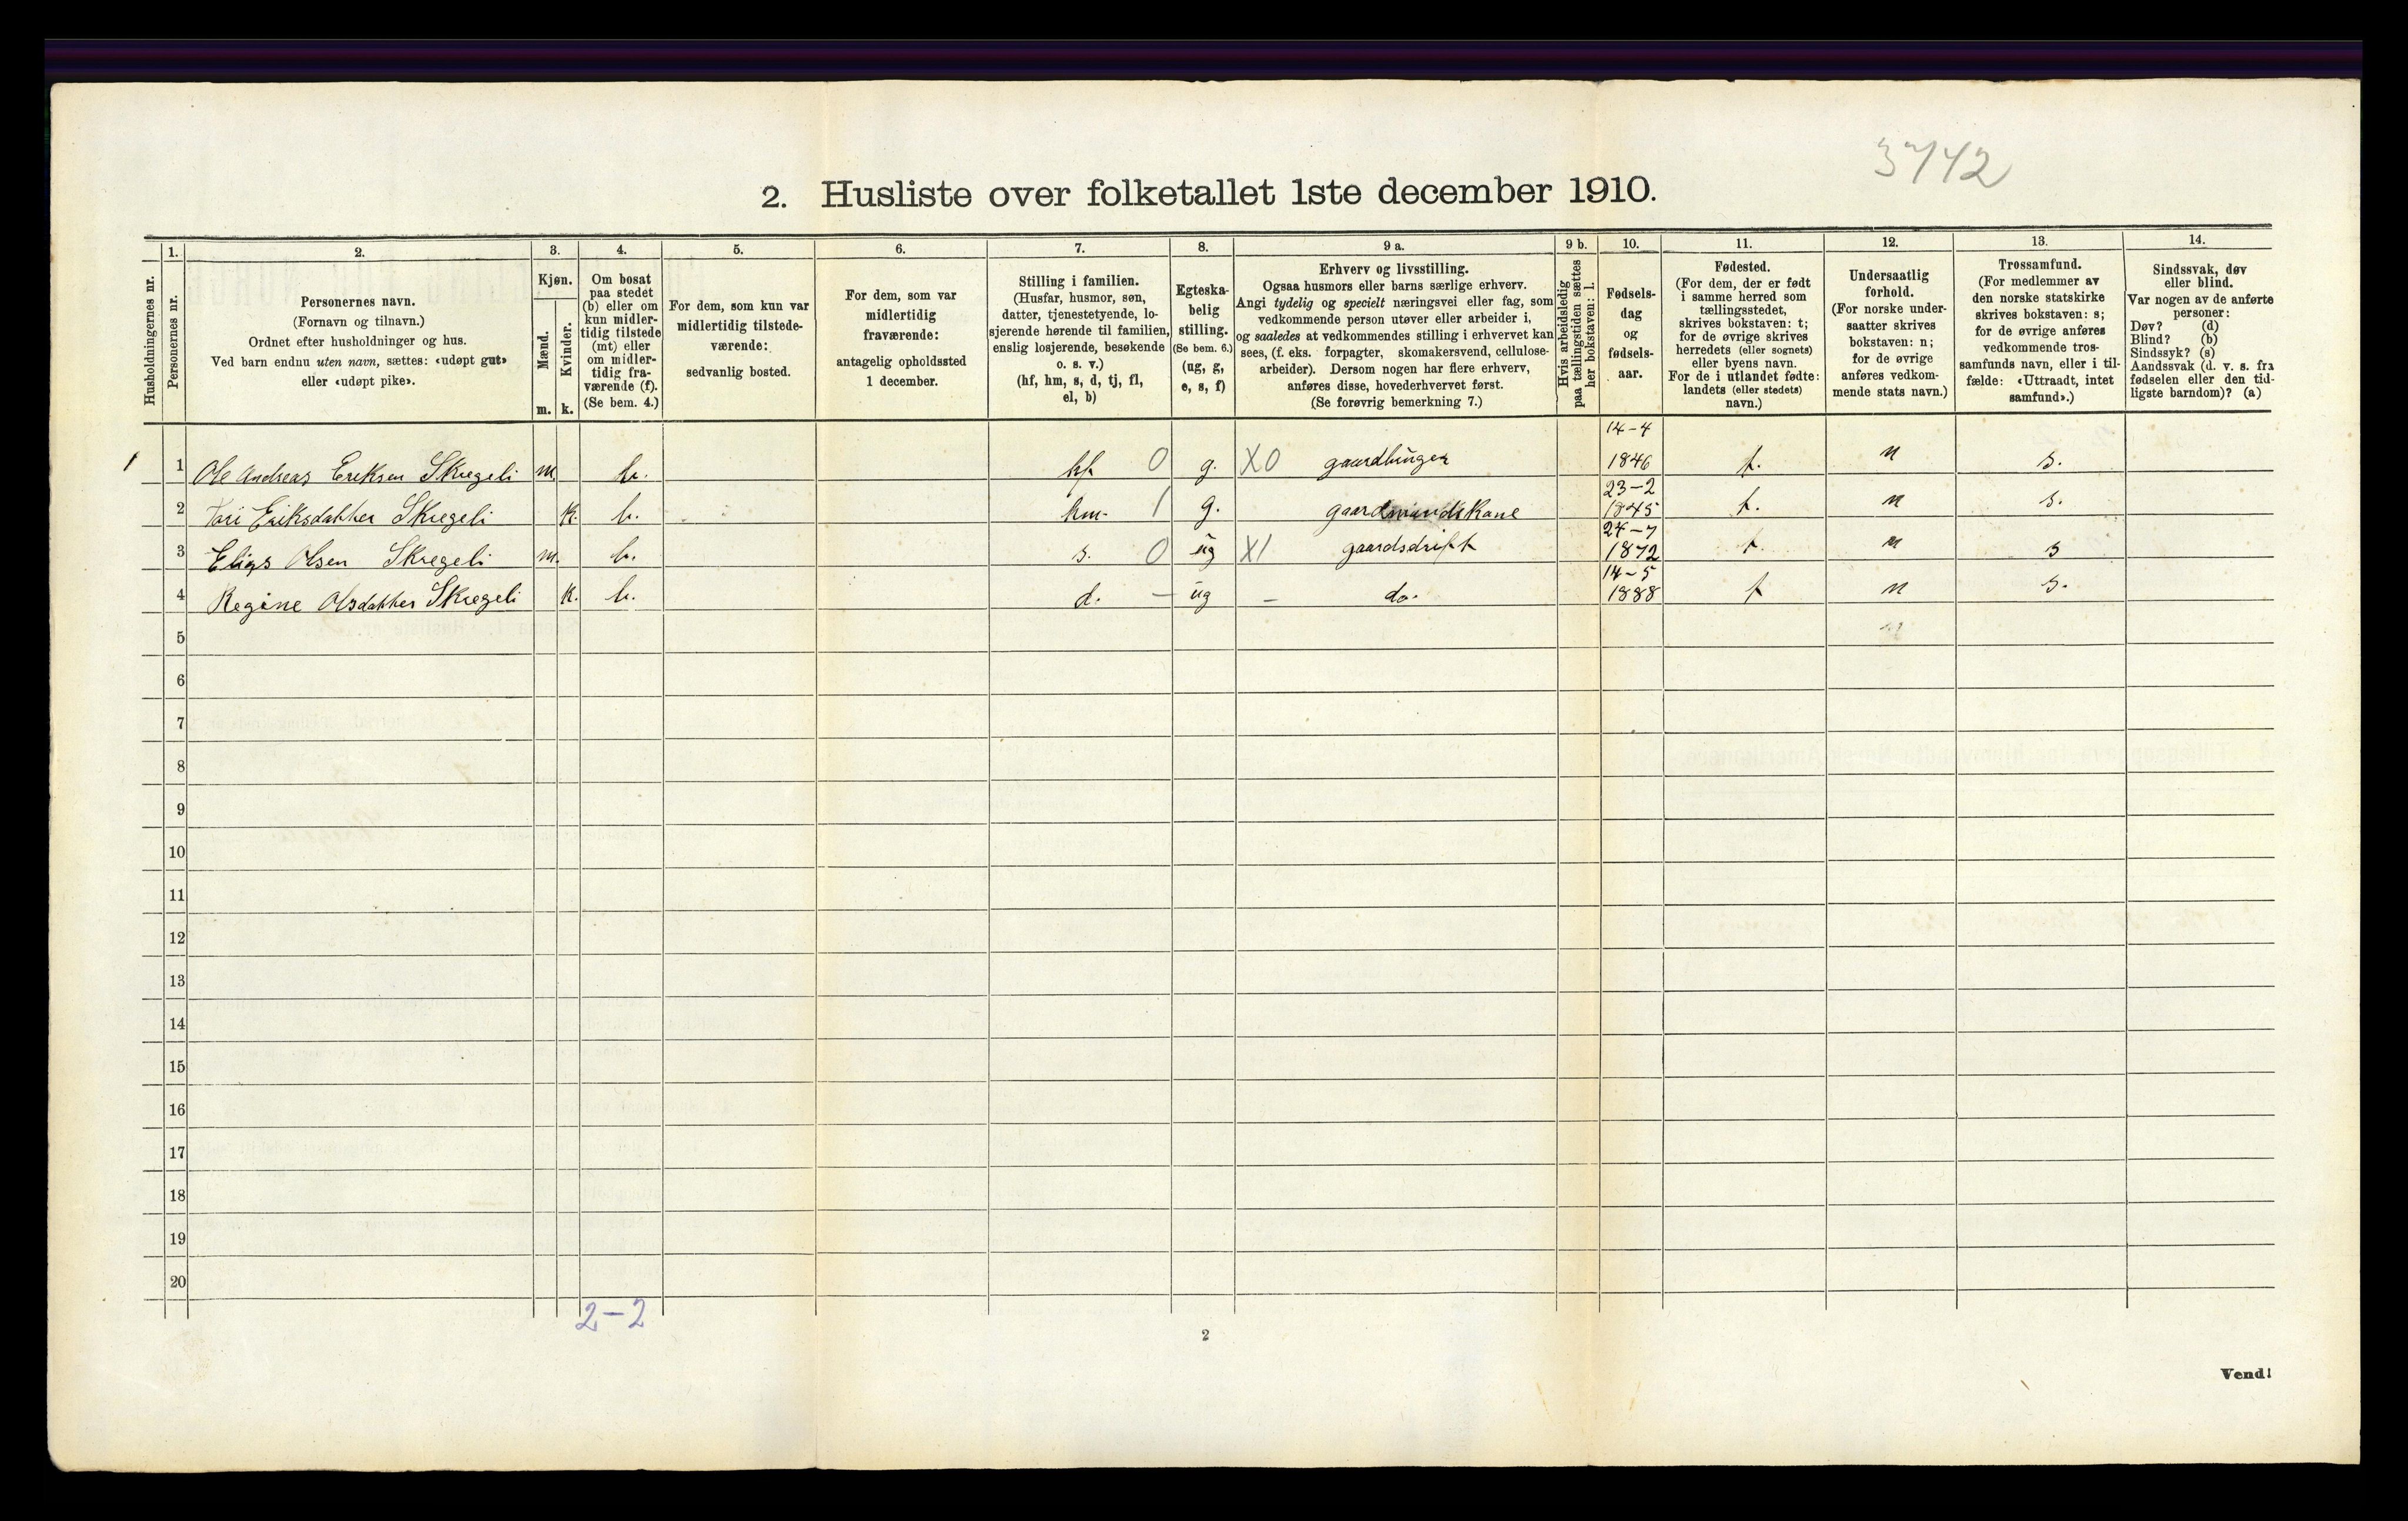 3742
2. Husliste over folketallet 1ste december 1910.
Husholdningernes nr.
1.
Personernes nr.
2.
Personernes navn.
(Fornavn og tilnavn.)
Ordnet efter husholdninger og hus.
Ved barn endnu uten navn, sættes: «udøpt gut»
eller «udøpt pike».
3.
Kjøn.
Mænd.
Kvinder.
m. k.
4.
Om bosat
paa stedet
(b) eller om
kun midler-
tidig tilstede
(mt) eller
om midler-
tidig fra-
værende (f).
(Se bem. 4.)
5.
For dem, som kun var
midlertidig tilstede-
værende:
sedvanlig bosted.
6.
For dem, som var
midlertidig
fraværende:
antagelig opholdssted
1 december.
7.
Stilling i familien.
(Husfar, husmor, søn,
datter, tjenestetyende, lo-
sjerende hørende til familien,
enslig losjerende, besøkende
o. s. v.)
(hf, hm, s, d, tj, fl,
el, b)
8.
Egteska-
belig
stilling.
(Se bem. 6.)
(ug, g,
e, s, f)
9 a.
Erhverv og livsstilling.
Ogsaa husmors eller barns særlige erhverv.
Angi tydelig og specielt næringsvei eller fag, som
vedkommende person utøver eller arbeider i,
og saaledes at vedkommendes stilling i erhvervet kan
sees, (f. eks. forpagter, skomakersvend, cellulose-
arbeider). Dersom nogen har flere erhverv,
anføres disse, hovederhvervet først.
(Se forøvrig bemerkning 7.)
9 b.
Hvis arbeidsledig
paa tællingstiden sættes
her bokstaven: l.
10.
Fødsels-
dag
og
fødsels-
aar.
11.
Fødested.
(For dem, der er født
i samme herred som
tællingsstedet,
skrives bokstaven: t;
for de øvrige skrives
herredets (eller sognets)
eller byens navn.
For de i utlandet fødte:
landets (eller stedets)
navn.)
12.
Undersaatlig
forhold.
(For norske under-
saatter skrives
bokstaven: n;
for de øvrige
anføres vedkom-
mende stats navn.)
13.
Trossamfund.
(For medlemmer av
den norske statskirke
skrives bokstaven: s;
for de øvrige anføres
vedkommende tros-
samfunds navn, eller i til-
fælde: «Uttraadt, intet
samfund».)
14.
Sindssvak, døv
eller blind.
Var nogen av de anførte
personer:
Døv? (d)
Blind? (b)
Sindssyk? (s)
Aandssvak (d. v. s. fra
fødselen eller den tid-
ligste barndom)? (a)
14-4
1 1 Ole Andreas Eriksen Skregeli m. b. hf 0 g. X0 gaardbruger 1846 t. n s.
23-2
2 Eriksdatter Skregeli k. b. hm- 1 g. gaardmandskone 1845 t. n s.
24-7
3 Olsen Skregeli m. b. s. 0 ug X1 gaardsdrift 1872 t. n s
14-5
4 Regine Olsdatter Skregeli k. b. d. - ug - do. 1888 t n s.
5
6
7
8
9
10
11
12
13
14
15
16
17
18
19
20
2-2
2
Vend!